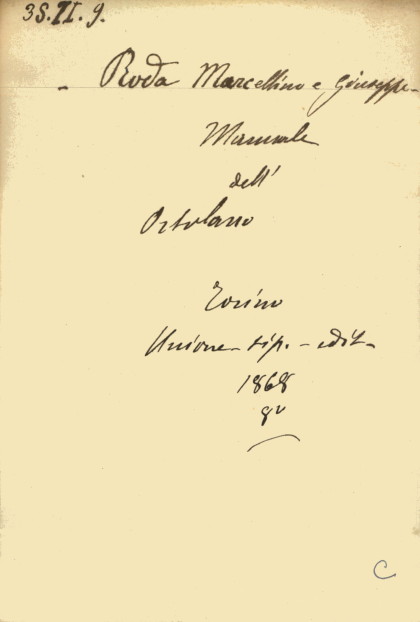 35.II.9.
Roda Marcellino e Giuseppe-
Manuale
dell'
Ortolano
Torino
Unione- tip. - edit-
1868
8º
C